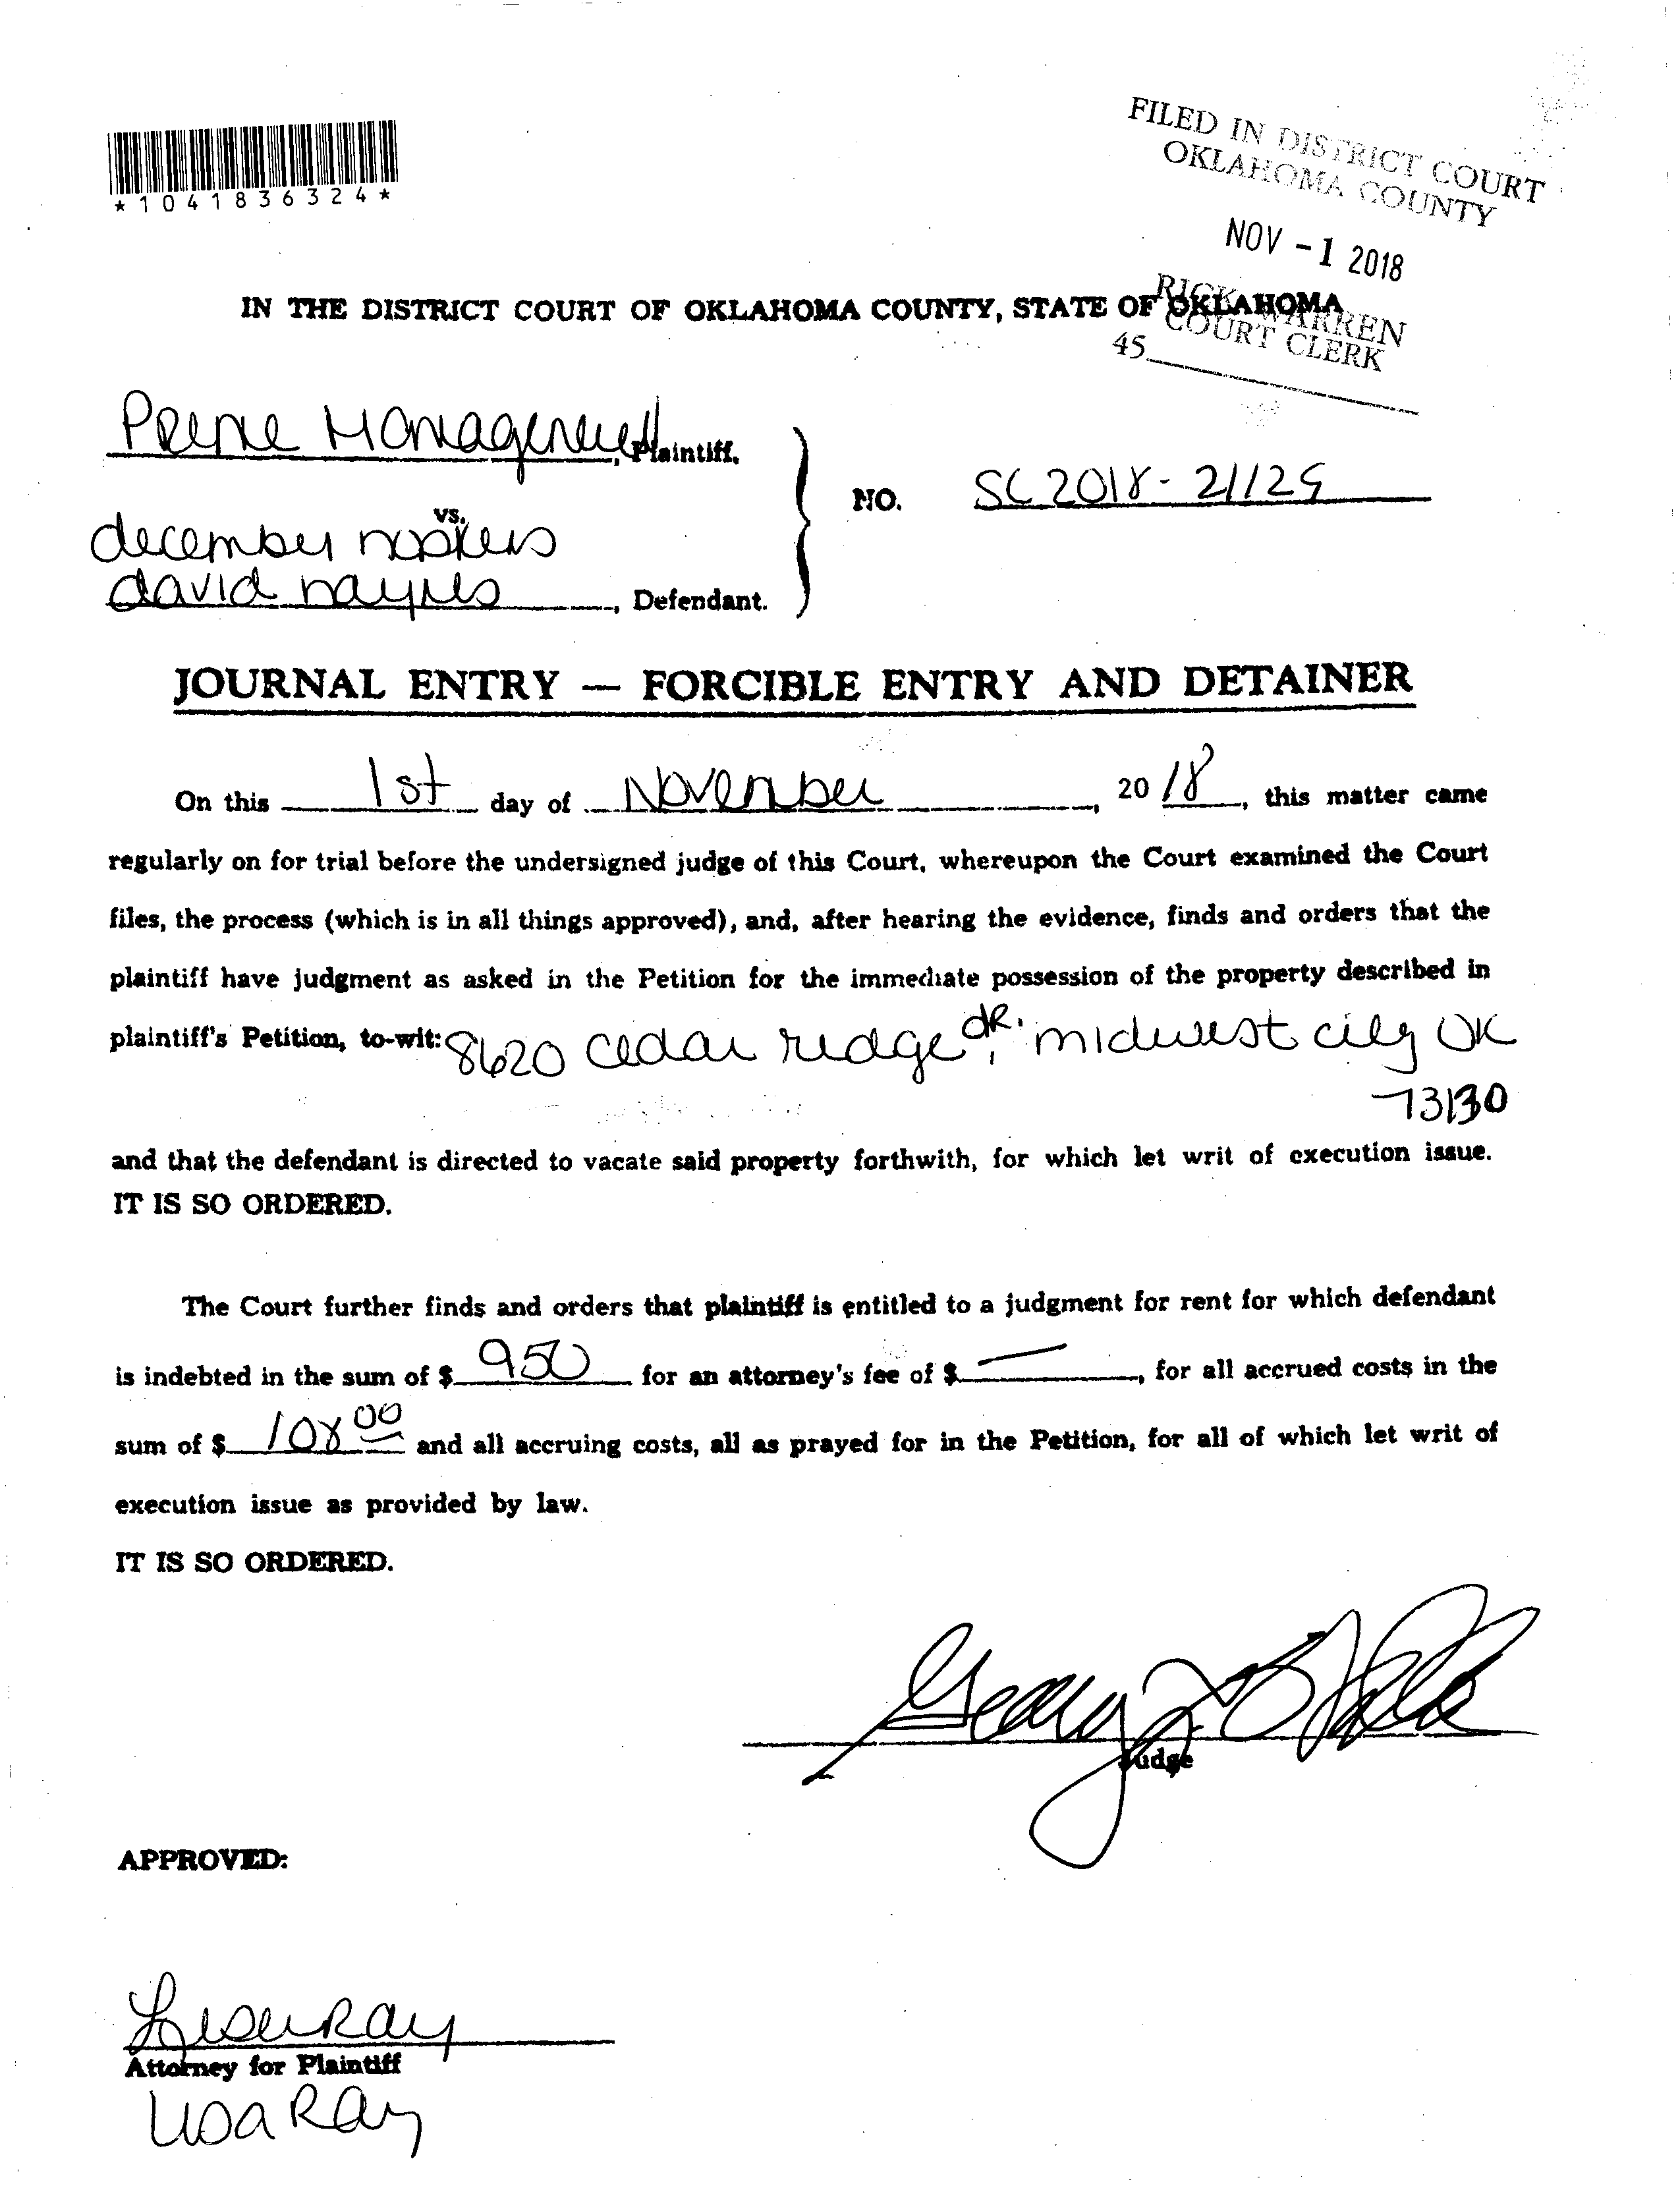 FILED IN DISTRICT COURT
OKLAHOMA COUNTY
NOV -1 2018
RICK WARREN
COURT CLERK
45
*1041836324*
IN THE DISTRICT COURT OF OKLAHOMA COUNTY, STATE OF OKLAHOMA
Prime Management, Plaintiff,
vs.
NO. SC 2018-21125
december
david haynes, Defendant.
JOURNAL ENTRY — FORCIBLE ENTRY AND DETAINER
On this 1st day of November, 2018, this matter came
regularly on for trial before the undersigned judge of this Court, whereupon the Court examined the Court
files, the process (which is in all things approved), and, after hearing the evidence, finds and orders that the
plaintiff have judgment as asked in the Petition for the immediate possession of the property described in
plaintiff's Petition, to-wit: 8620 cedar ridge dr., midwest city OK
73130
and that the defendant is directed to vacate said property forthwith, for which let writ of execution issue.
IT IS SO ORDERED.
The Court further finds and orders that plaintiff is entitled to a judgment for rent for which defendant
is indebted in the sum of $ 950 for an attorney's fee of $ —, for all accrued costs in the
sum of $ 108 00 and all accruing costs, all as prayed for in the Petition, for all of which let writ of
execution issue as provided by law.
IT IS SO ORDERED.
Judge
APPROVED:
Lisa Ray
Attorney for Plaintiff
Lisa Ray